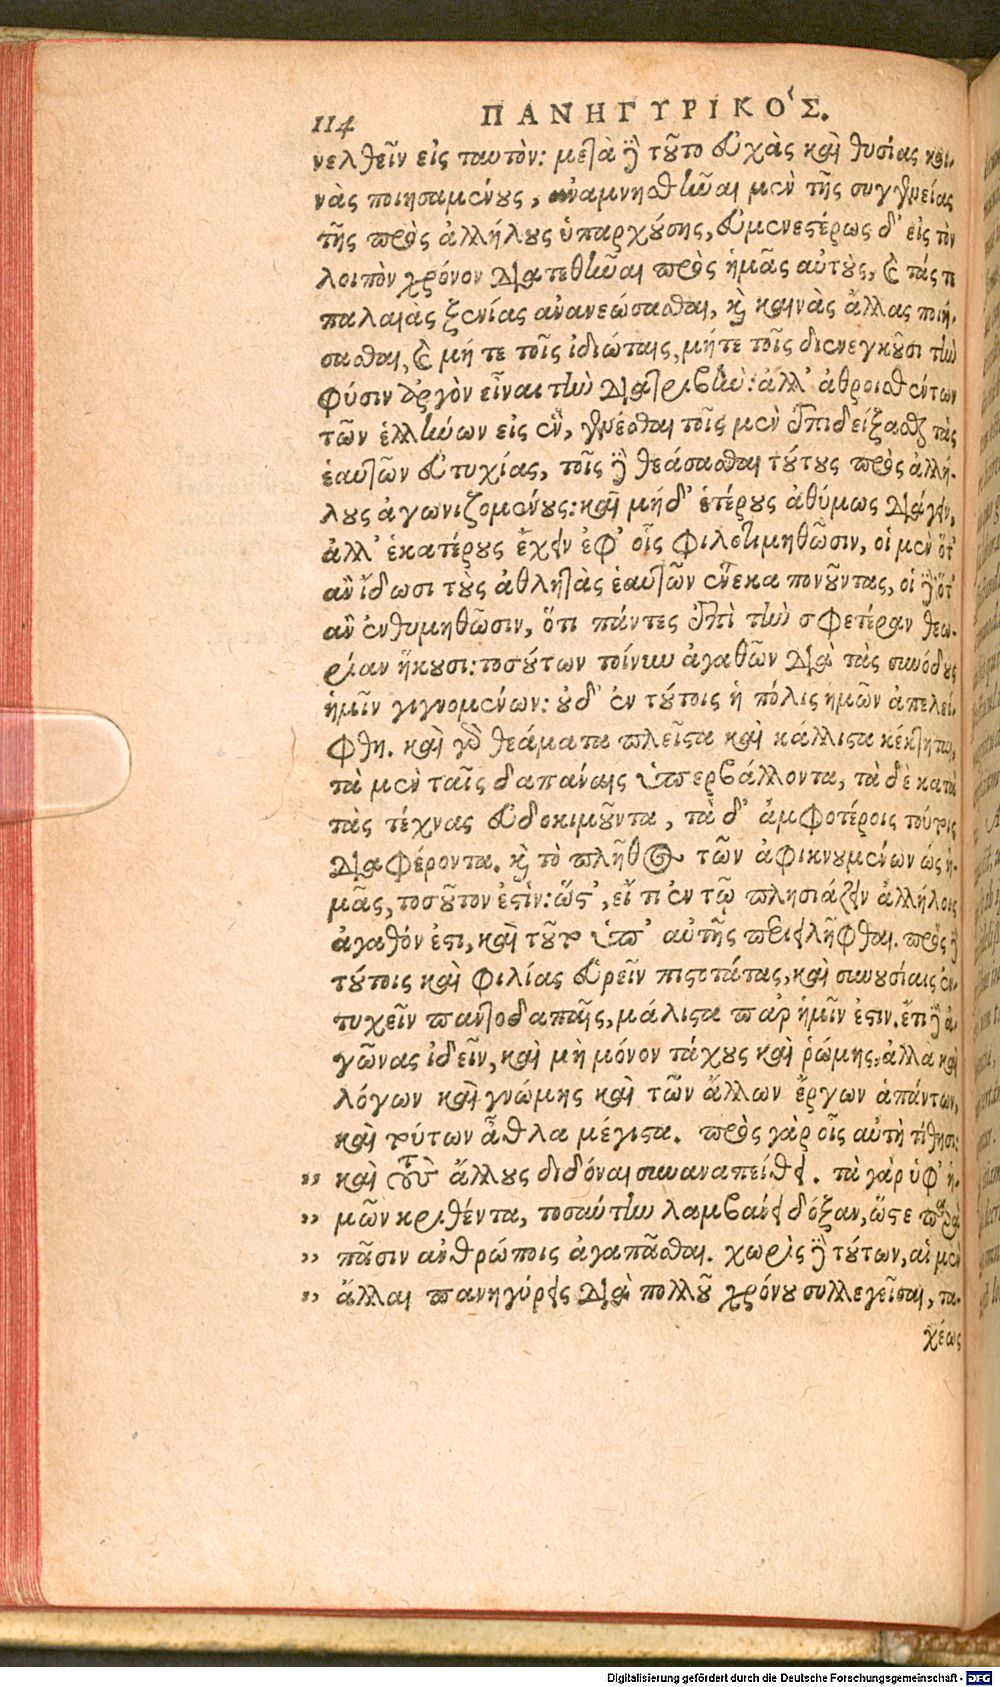 114 ΠΑΝΗΓΥΡΙΚΟ΄Σ.
νελθεῖν εἰς ταυτὸν: μετὰ δὲ τοῦτο εὐχὰς καὶ θυσίας κοι-
νὰς ποιησαμένους, ἀναμνησθῆναι μὲν τῆς συγγενείας
τῆς πρὸς ἀλλήλους ὑπαρχούσης, εὐμενεστέρως δ' εἰς τὸν
λοιπὸν χρόνον διατεθῆναι πρὸς ἡμᾶς αὐτοὺς, καὶ τάς τε
παλαιὰς ξενίας ἀνανεώσασθαι, καὶ καινὰς ἄλλας ποιή-
σασθαι, καὶ μήτε τοῖς ἰδιώταις, μήτε τοῖς διενεγκοῦσι τὴν
φύσιν ἀργὸν εἶναι τὴν διατριβὴν: ἀλλ' ἀθροισθέντων
τῶν ἑλλήνων εἰς ἓν, γενέσθαι τοῖς μὲν ἐπιδείξασθαι τὰς
ἑαυτῶν εὐτυχίας, τοῖς δὲ θεάσασθαι τούτους πρὸς ἀλλή-
λους ἀγωνιζομένους: καὶ μήδ' ἑτέρους ἀθύμως διάγειν,
ἀλλ' ἑκατέρους ἔχειν ἐφ' οἷς φιλοτιμηθῶσιν, οἱ μὲν ὅτ'
ἂν ἴδωσι τοὺς ἀθλητὰς ἑαυτῶν ἕνεκα πονοῦντας, οἱ δ' ὅτ'
ἂν ἐνθυμηθῶσιν, ὅτι πάντες ἐπὶ τὴν σφετέραν θεω-
ρίαν ἥκουσι: τοσούτων τοίνυν ἀγαθῶν διὰ τὰς συνόδους
ἡμῖν γιγνομένων: οὐδ' ἐν τούτοις ἡ πόλις ἡμῶν ἀπελεί-
φθη. καὶ γὰρ θεάματα πλεῖστα καὶ κάλλιστα κέκτηται,
τὰ μὲν ταῖς δαπάναις ὑπερβάλλοντα, τὰ δὲ κατὰ
τὰς τέχνας εὐδοκιμοῦντα, τὰ δ' ἀμφοτέροις τούτοις
διαφέροντα. καὶ τὸ πλῆθος τῶν ἀφικνουμένων ὡς ἡ-
μᾶς, τοσοῦτον ἐστὶν: ὥστ', εἴ τι ἐν τῷ πλησιάζειν ἀλλήλοις
ἀγαθόν ἐστι, καὶ τοῦτο ὑπ' αὐτῆς περιειλῆφθαι. πρὸς δὲ
τούτοις καὶ φιλίας εὑρεῖν πιστοτάτας, καὶ συνουσίαις ἐν-
τυχεῖν παντοδαπαῖς, μάλιστα παρ' ἡμῖν ἐστιν. ἔτι δ' ἀ-
γῶνας ἰδεῖν, καὶ μὴ μόνον τάχους καὶ ῥώμης, ἀλλὰ καὶ
λόγων καὶ γνώμης καὶ τῶν ἄλλων ἔργων ἁπάντων,
καὶ τούτων ἆθλα μέγιστα. πρὸς γὰρ οἷς αὐτὴ τίθησι:
,, καὶ τοὺς ἄλλους διδόναι συναναπείθει. τὰ γὰρ ὑφ' ἡ-
,, μῶν κριθέντα, τοσαύτην λαμβάνει δόξαν, ὥστε παρὰ
,, πᾶσιν ἀνθρώποις ἀγαπᾶσθαι. χωρὶς δὲ τούτων, αἱ μὲν
,, ἄλλαι πανηγύρεις διὰ πολλοῦ χρόνου συλλεγεῖσαι, τα-
χέως
Digitalisierung gefördert durch die Deutsche Forschungsgemeinschaft - DFG